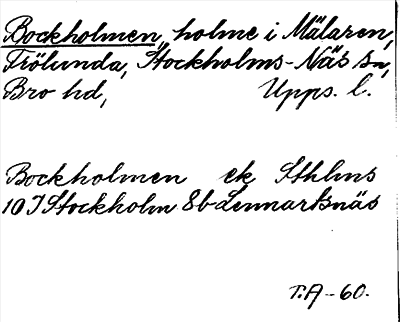 Bockholmen, holme i Mälaren,
Frölunda, Stockholms-Näs sn,
Bro hd, Upps. l.
Bockholmen ek Sthlms
10 I Stockholm 8b Lennartsnäs
T.A-60.